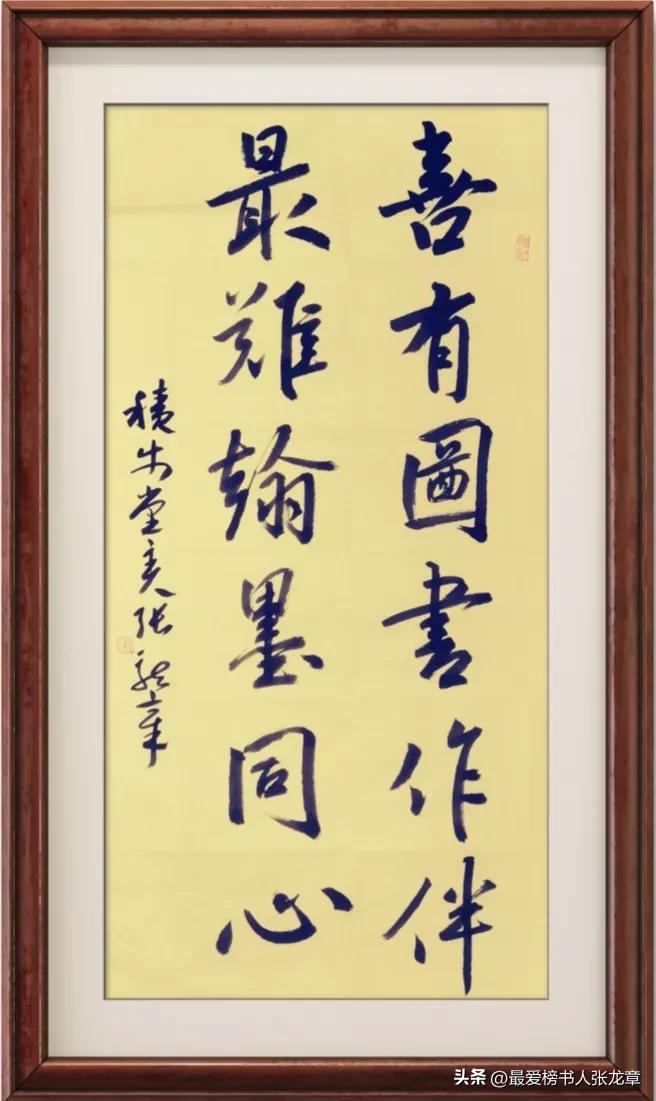 喜有圖書作伴
最难翰墨同心
堂主人张龙章
头条 @最爱榜书人张龙章